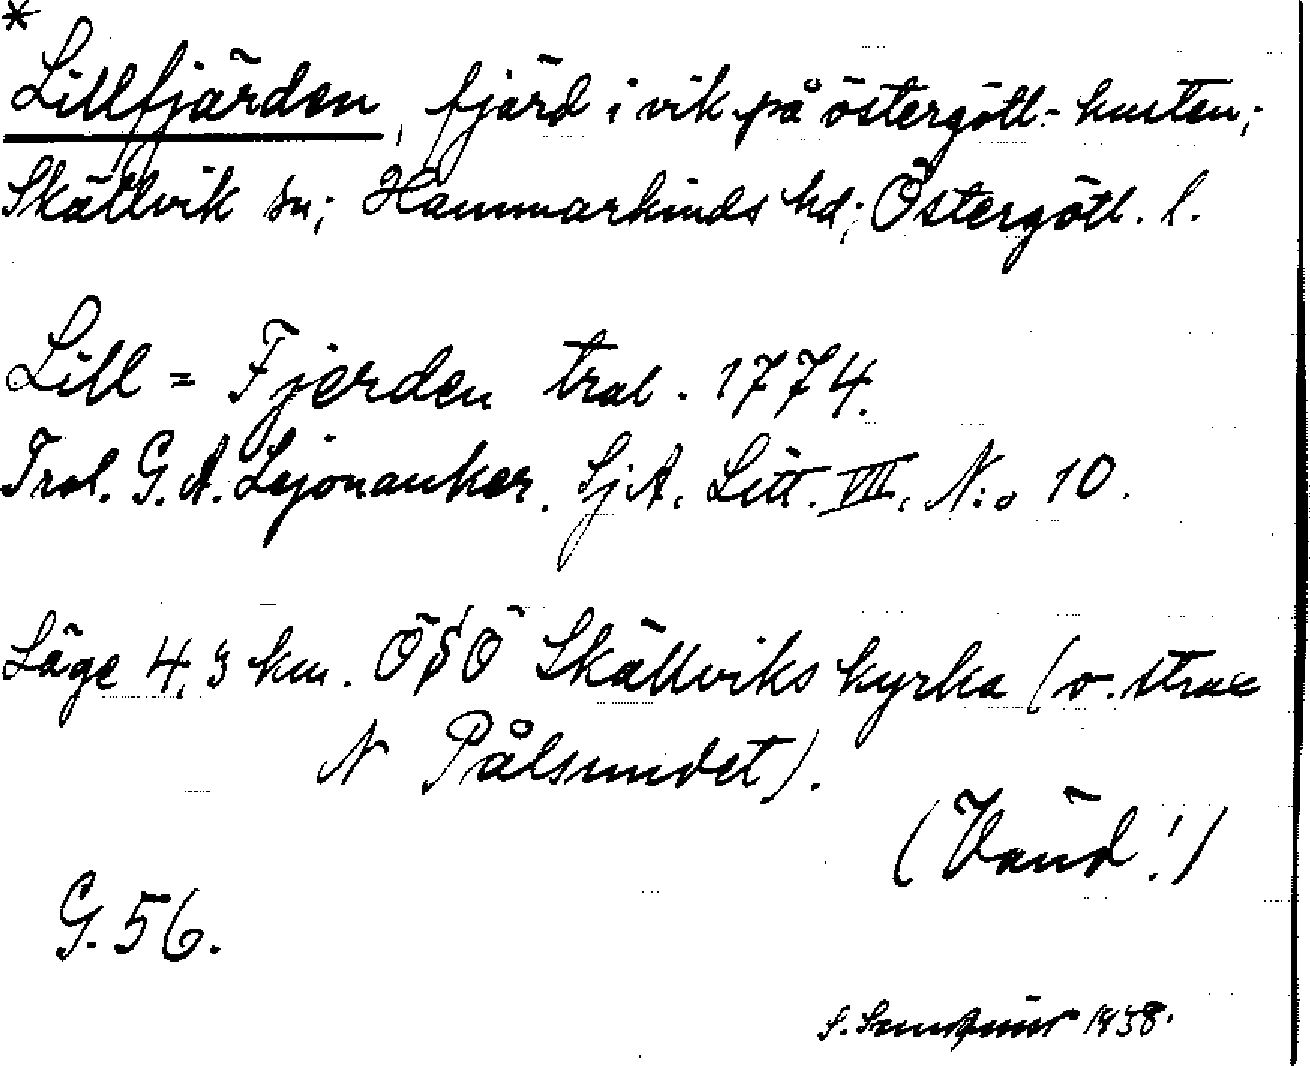 *
Lillfjärden, fjärd i vik på östergötl.-kusten;
Skällvik sn; Hammarkinds hd; Östergötl. l.
Lill=Fjerden tral. 1774.
Tral. G. A. Lejonanker. SjA. Litt. VII. N:o 10.
Läge 4,3 km. ÖSÖ Skällviks kyrka (o. strax
N Pålsundet).
(Vänd!)
G. 56.
S. 1938.